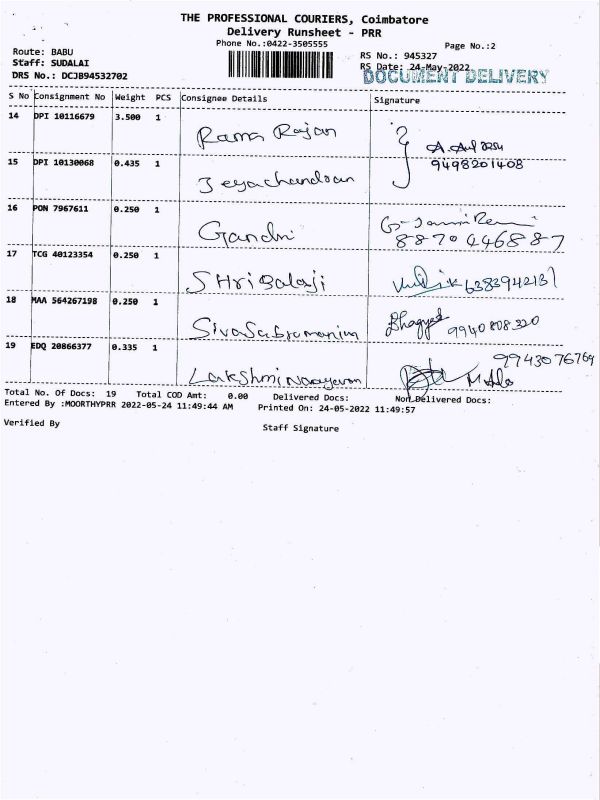 THE PROFESSIONAL COURIERS, Coimbatore
Delivery Runsheet - PRR
Phone No.:0422-3505555
Page No.:2
Route: BABU
Staff: SUDALAI
DRS No.: DCJB94532702
RS No.: 945327
RS Date: 24-May-2022
DOCUMENT DELIVERY
S No Consignment No Weight PCS Consignee Details Signature
14 DPI 10116679 3.500 1 Rama Rajan
15 DPI 10130068 0.435 1 Jeyachandran
9498201408
16 PON 7967611 0.250 1 Gandhi
8870446887
17 TCG 40123354 0.250 1 SHri Balaji 6383942131
18 MAA 564267198 0.250 1 SivaSubramaniam Bhagyat 9940808320
19 EDQ 20866377 0.335 1 Lakshmi Narayanan 9943076764
Total No. Of Docs: 19 Total COD Amt: 0.00 Delivered Docs: Non Delivered Docs:
Entered By :MOORTHYPRR 2022-05-24 11:49:44 AM Printed On: 24-05-2022 11:49:57
Verified By Staff Signature